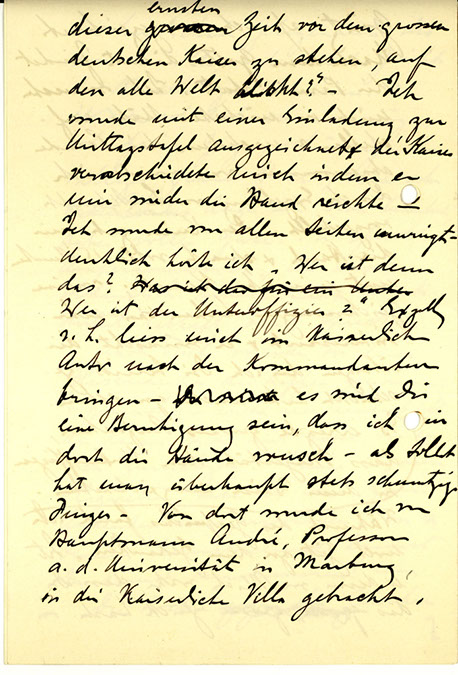 ernsten
dieser Zeit vor dem grossen
deutschen Kaiser zu stehen, auf
den alle Welt blickt?" – Ich
wurde mit einer Einladung zur
Mittagstafel ausgezeichnet, der Kaiser
verabschiedete mich indem er
mir wieder die Hand reichte –
Ich wurde von allen Seiten umringt-
deutlich hörte ich „Wer ist denn
das? Was ist das für ein
Wer ist der Unteroffizier?" Exzell
v. L. liess mich im Kaiserlichen
Auto nach der Kommandantur
bringen – es wird Dir
eine Beruhigung sein, dass ich mir
dort die Hände wusch – als Soldat
hat man überhaupt stets schmutzige
Finger – Von dort wurde ich von
Hauptmann André, Professor
a. d. Universität in Marburg,
in die Kaiserliche Villa gebracht.